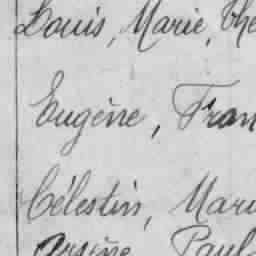 Louis, Marie, The
Eugène, Fran
Célestin, Mari
Arsène Paul